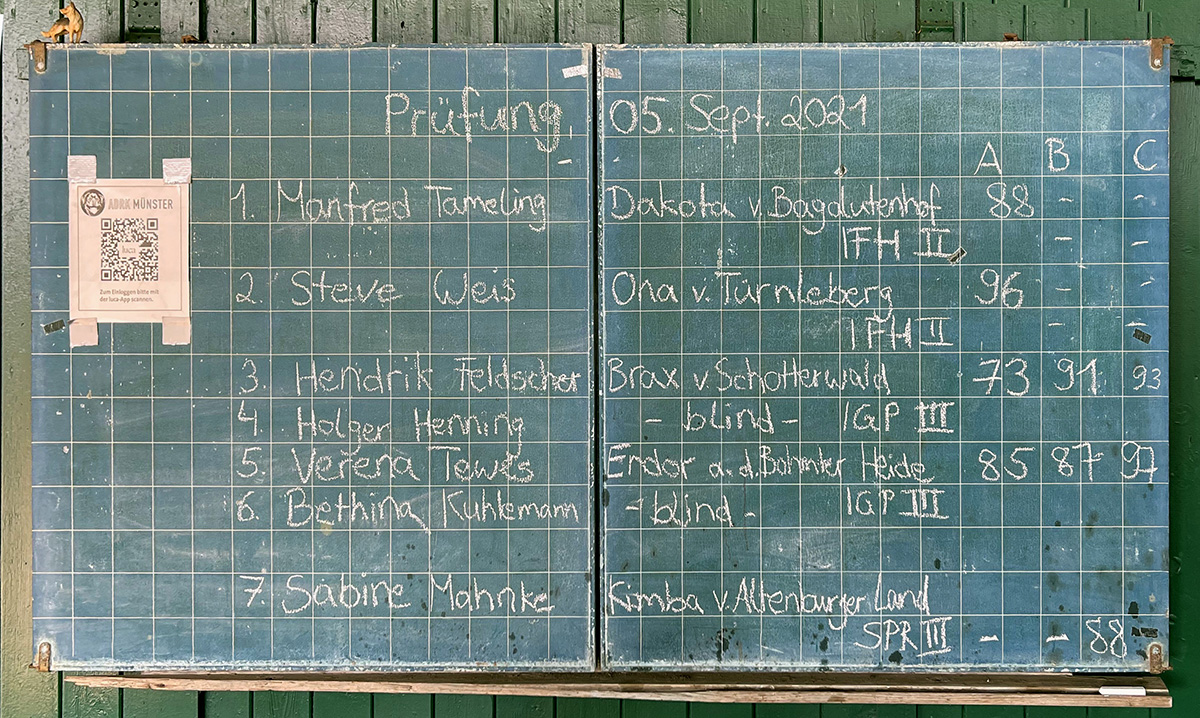 Prüfung, 05. Sept. 2021
A B C
ADRK MÜNSTER
luca
Zum Einloggen bitte mit
der luca-App scannen.
1. Manfred Tameling Dakota v. Bagdutenhof 88 - -
IFH II - -
2. Steve Weis Ona v. Türnleberg 96 - -
IFH II - -
3. Hendrik Feldscher Brax v Schotterwald 73 91 93
4. Holger Henning - blind - IGP III
5. Verena Tewes Endor a. d. Bohmter Heide 85 87 97
6. Bethina Kuhlemann - blind - IGP III
7. Sabine Mahnke Kimba v. Altenburger Land
SPR III - - 88